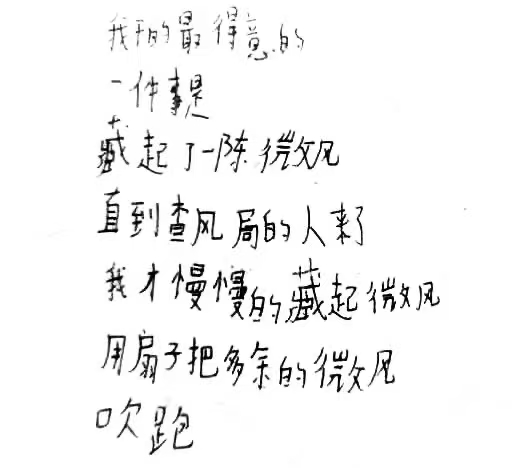 我干的最得意的
一件事是
藏起了一陈微风
直到查风局的人来了
我才慢慢的藏起微风
用扇子把多余的微风
吹跑